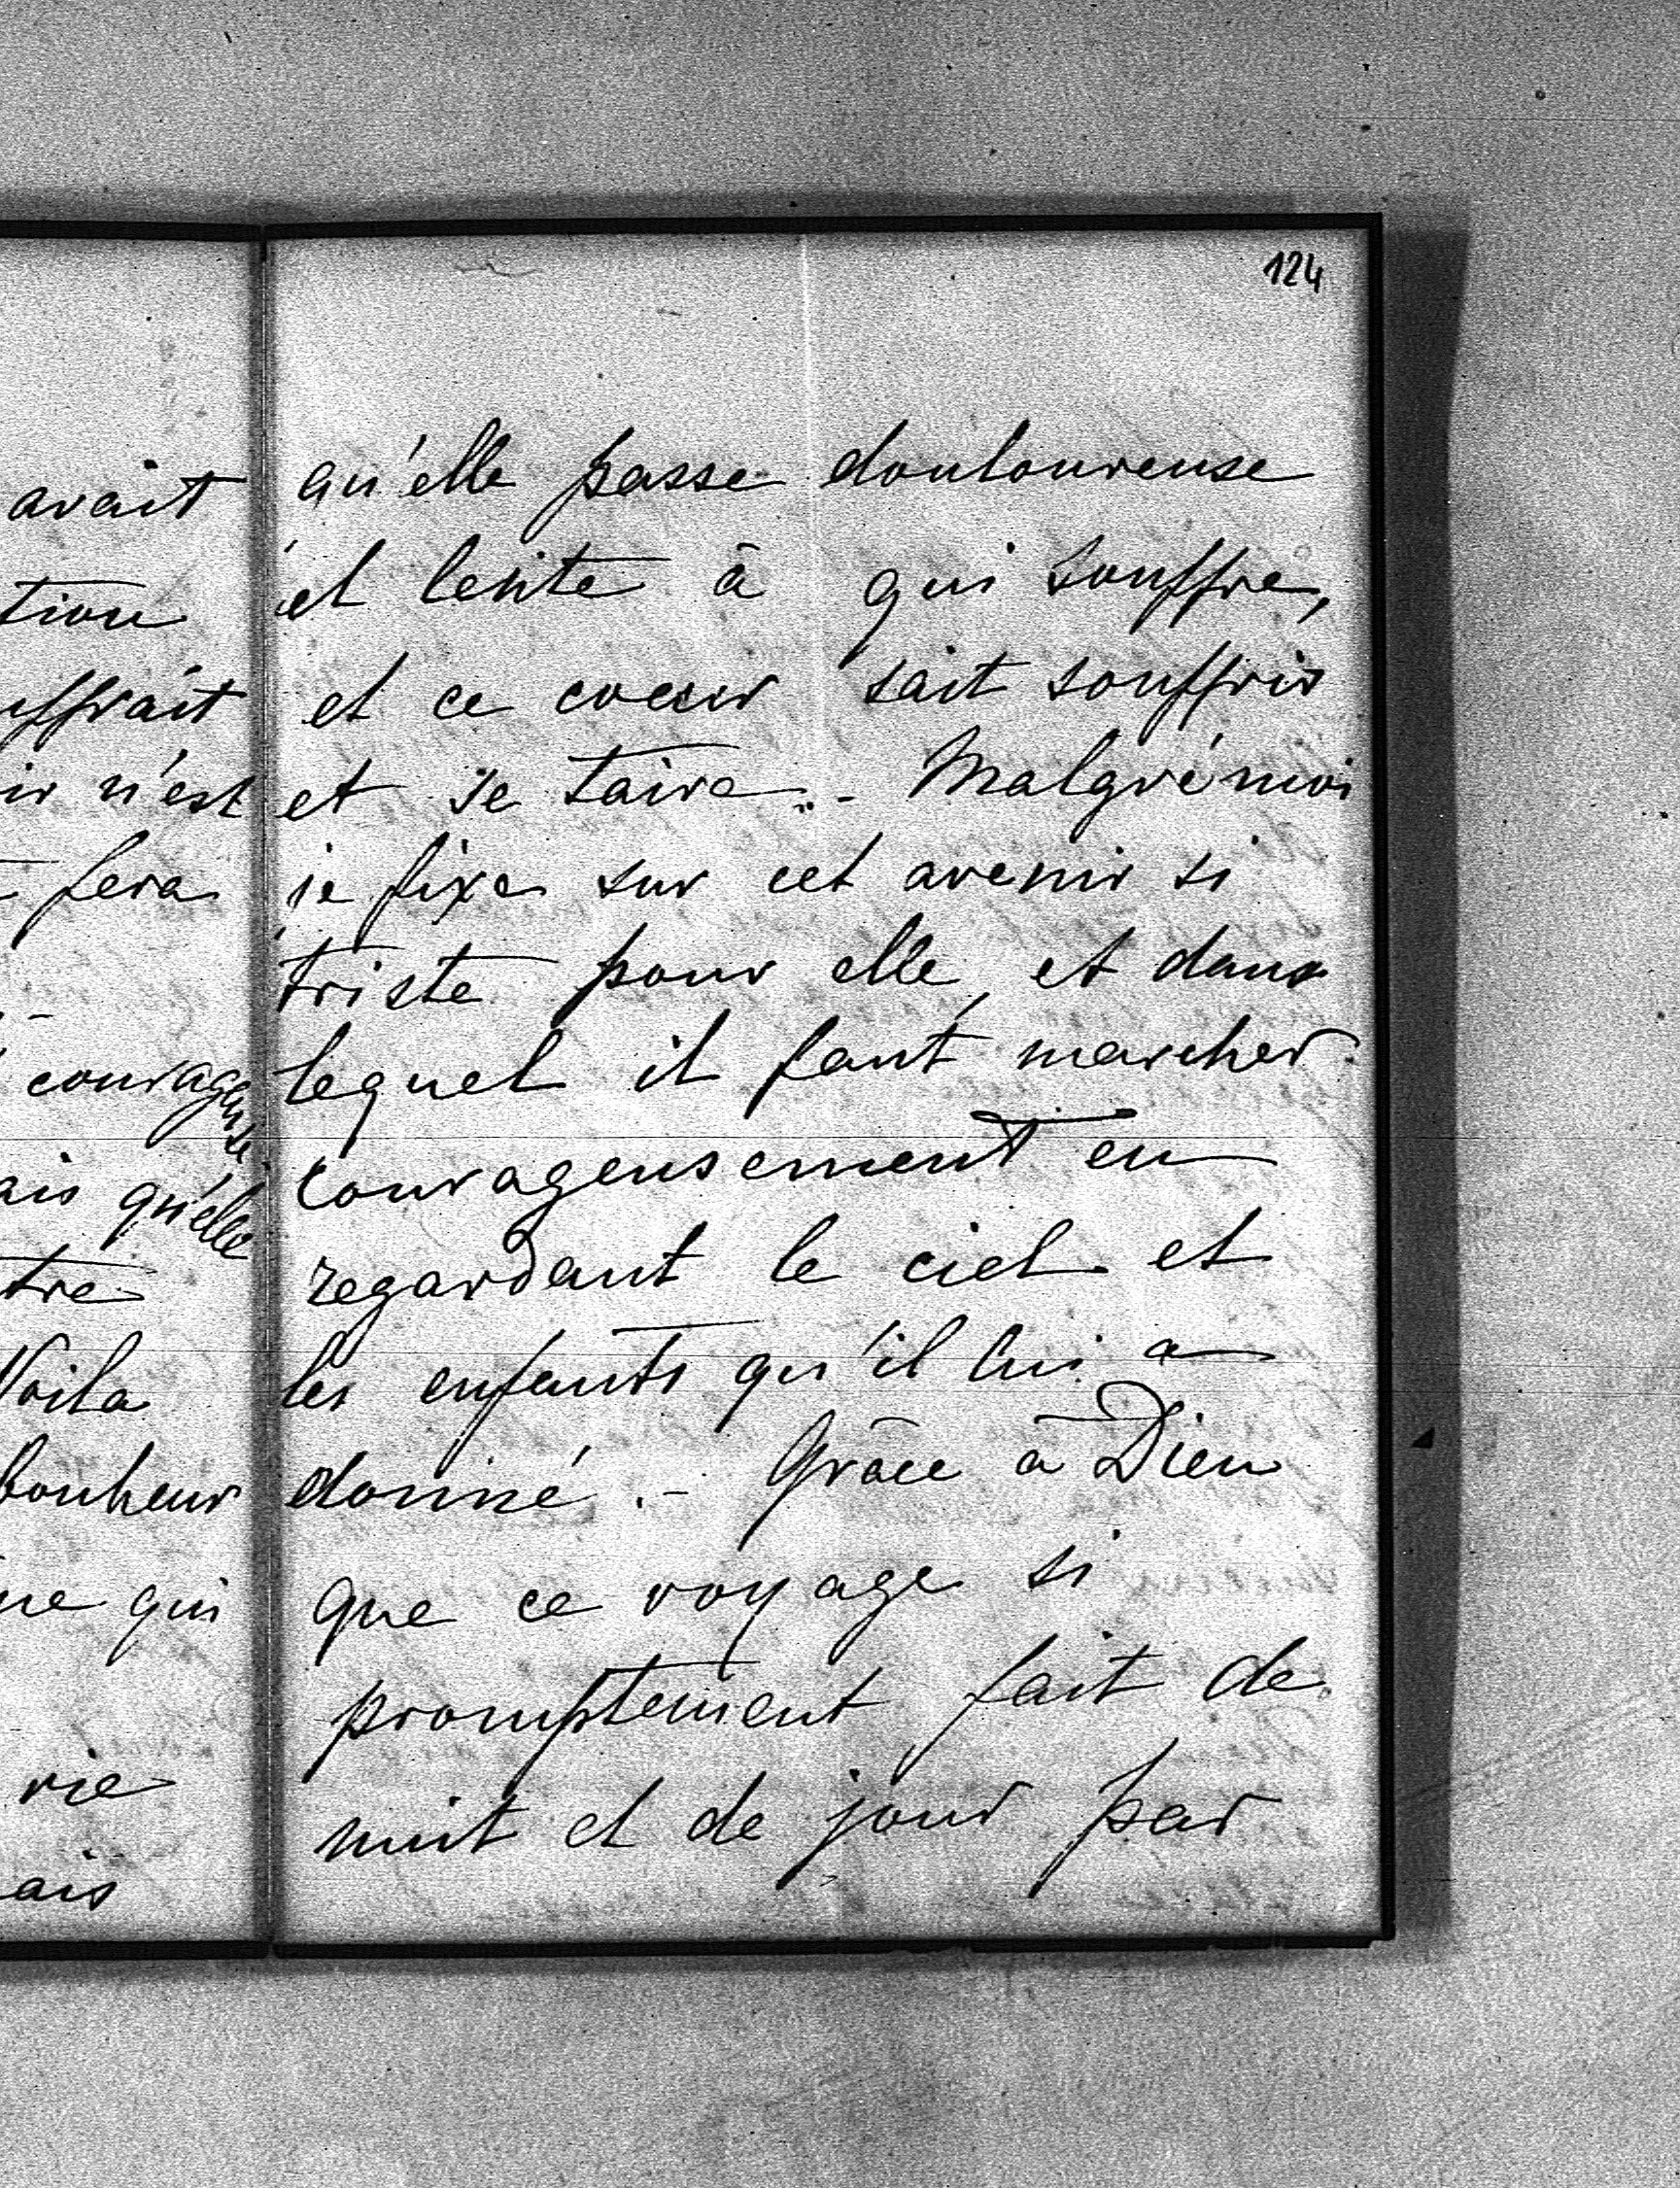 avait
tion
uffrait
ir n'est
fera
courageuse
ais qu'elle
tre
Voila
bonheur
ne qui
vie
ais
124
qu'elle passe douloureuse
et lente à qui souffre,
et ce coeur sait souffrir
et se taire.. - Malgré moi
je fixe sur cet avenir si
triste pour elle, et dans
lequel il faut marcher
courageusement en
regardant le ciel et
les enfants qu'il lui a
donné. - Grâce à Dieu
que ce voyage si
promptement fait de
nuit et de jour par